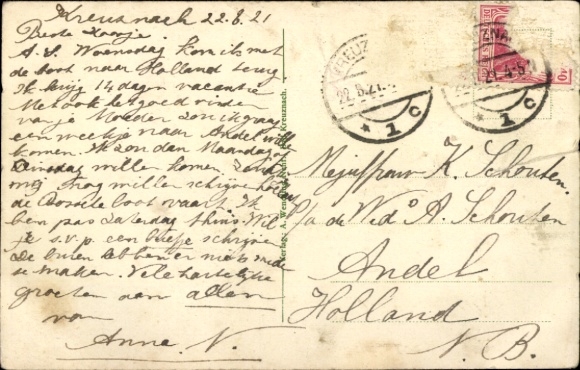 Kreuznach 22.8.21
Beste Koosje.
A.S. Woensdag kom ik met
de boot naar Holland terug
Ik krijg 14 dagen vacantie
Met ook het goed vinden
van je Moeder zou ik graag
een weekje naar Andel
komen. Ik zou dan Maandag of
Dinsdag willen komen.
mij nog willen schrijven hoe
de boot vaart. Ik
ben pas Zaterdag thuis. Wil
je s.v.p. een briefje schrijven
De buren hebben er niets mede
te maken. Vele hartelijke
groeten aan allen
van
Anna. V.
Verlag v. A.
Kreuznach.
KREUZNACH
22.8.21
* 1 c
* 1 c
Mejuffrouw K. Schouten.
p/a de Wed A. Schouten
Andel
Holland
N. B.